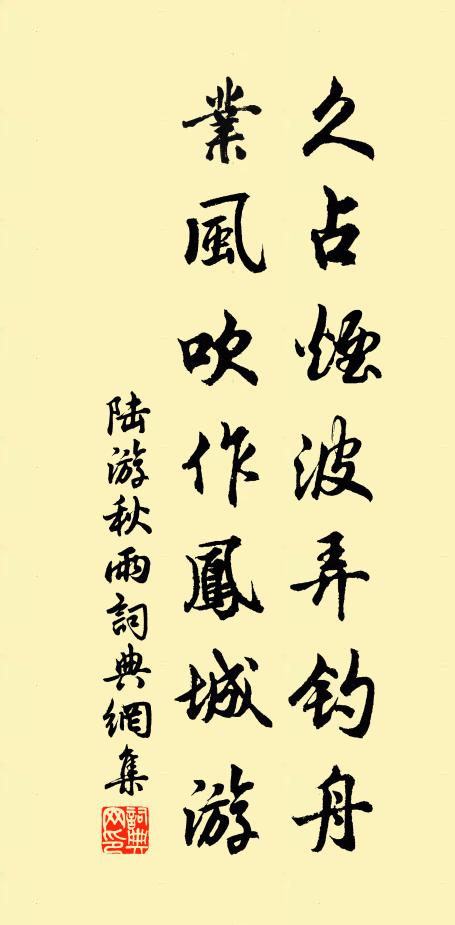 久占煙波弄钓舟
業風吹作鳳城游
陆游秋雨詞典網集
詞典網印